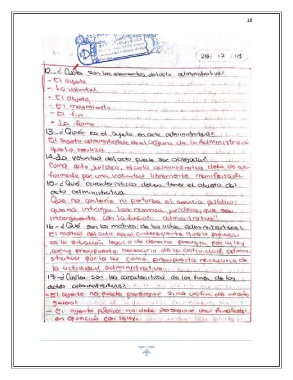 18
29/12/18
12.- ¿Cuáles son los elementos del acto administrativo?
- El sujeto
- La voluntad
- El objeto
- El
- El fin
- La forma
13.- ¿Quién es el sujeto en acto administrativo?
El sujeto administrativo es el órgano de la Administración
que lo realiza
14.- La voluntad del acto puede ser
Como acto jurídico, el acto administrativo debe de estar
formado por una voluntad libremente manifestada.
15.- ¿Qué característica deben tener el objeto del
acto administrativo
Que no contenga ni perturbe el servicio público;
que no infrinja las normas jurídicas; que sea
incongruente con la función administrativa
16.- ¿Qué son los motivos de los actos administrativos?
El motivo del acto es el antecedente que lo provoca
es la situación legal o de derecho prevista por la ley
como presupuesto necesario de la actividad admini-
strativa por la ley como presupuesto necesario de
la actividad administrativa.
17.- ¿Cuáles son las características de los fines de los
actos administrativos?
- El agente no puede perseguir sino un fin de interés
general
- El agente público no debe perseguir una finalidad
en oposición con la ley.